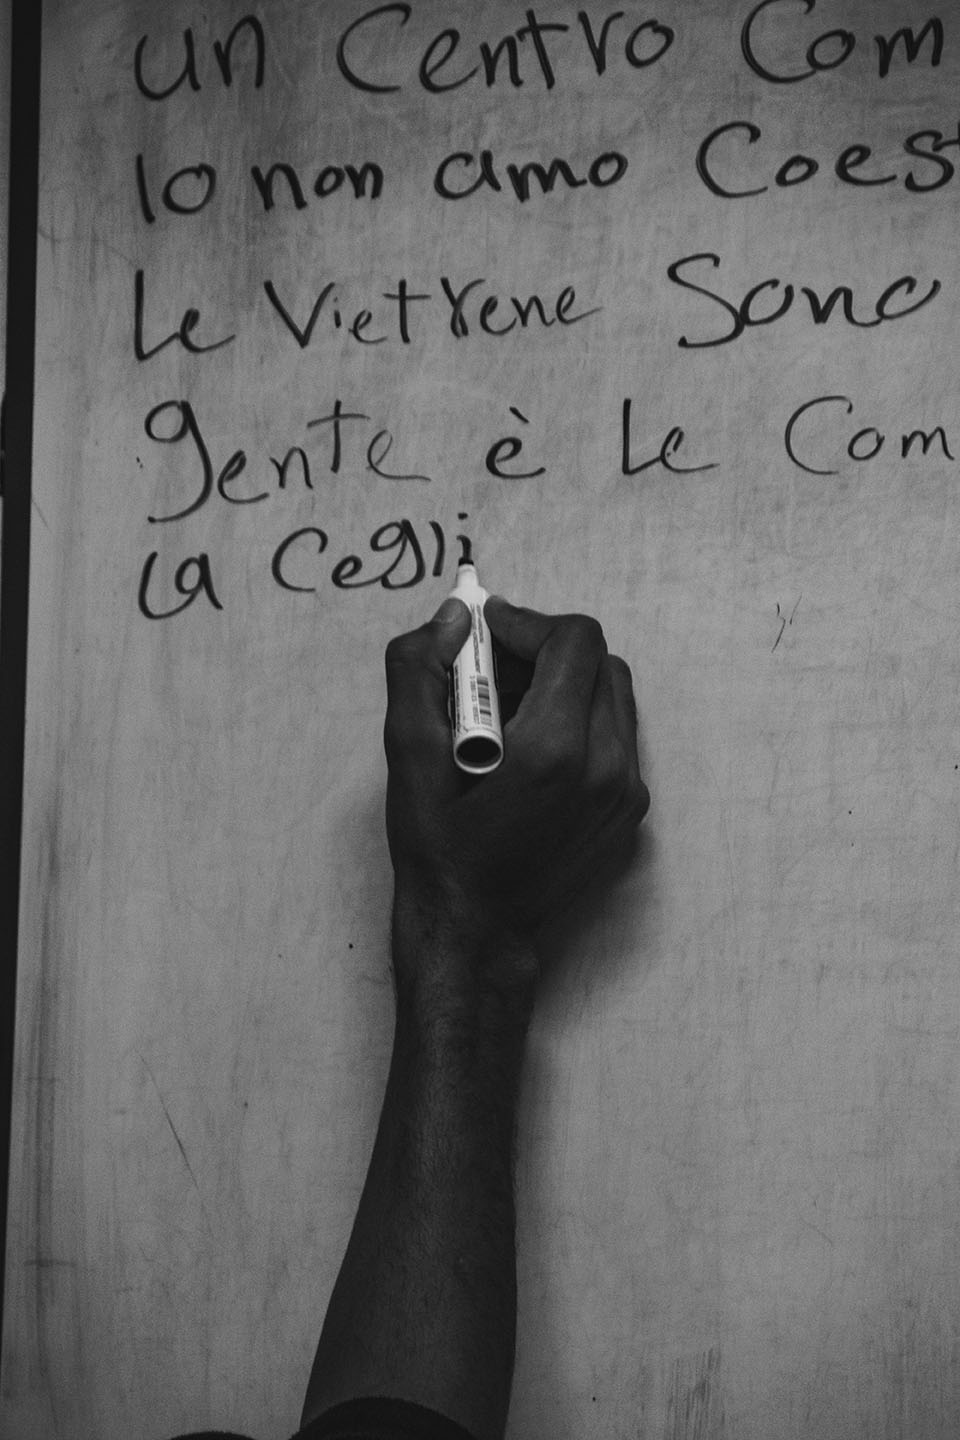 un Centro Com
Io non amo Coest
Le Vietrene Sono
gente è Le Com
La Cegli